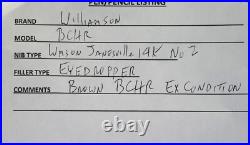 PEN/PENCIL LISTING
BRAND WILLIAMSON
MODEL BCHR
NIB TYPE WMSON JANESVILLE 14K NO 2
FILLER TYPE EYEDROPPER
COMMENTS BROWN BCHR EX CONDITION